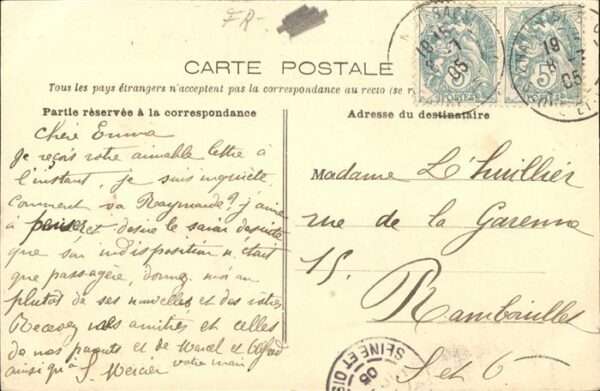 FR-
CARTE POSTALE
Tous les pays étrangers n'acceptent pas la correspondance au recto (se r
Partie réservée à la correspondance
Adresse du destinataire
Chère Emma
Je reçois votre aimable lettre à
l'instant, je suis inquiète
Comment va Raymonde? j'aime
à penser et désire le savoir de suite
que son indisposition n'était
que passagère, donnez moi au
plutôt de ses nouvelles et des vôtres
Recevez mes amitiés et celles
de nos parents et de Marcel et
ainsi qu'à votre mari
S. Mercier
Madame L'huillier
rue de la Garenne
15.
Rambouillet
S et O
19
05
5
19
8
05
SEINE ET OIS
05